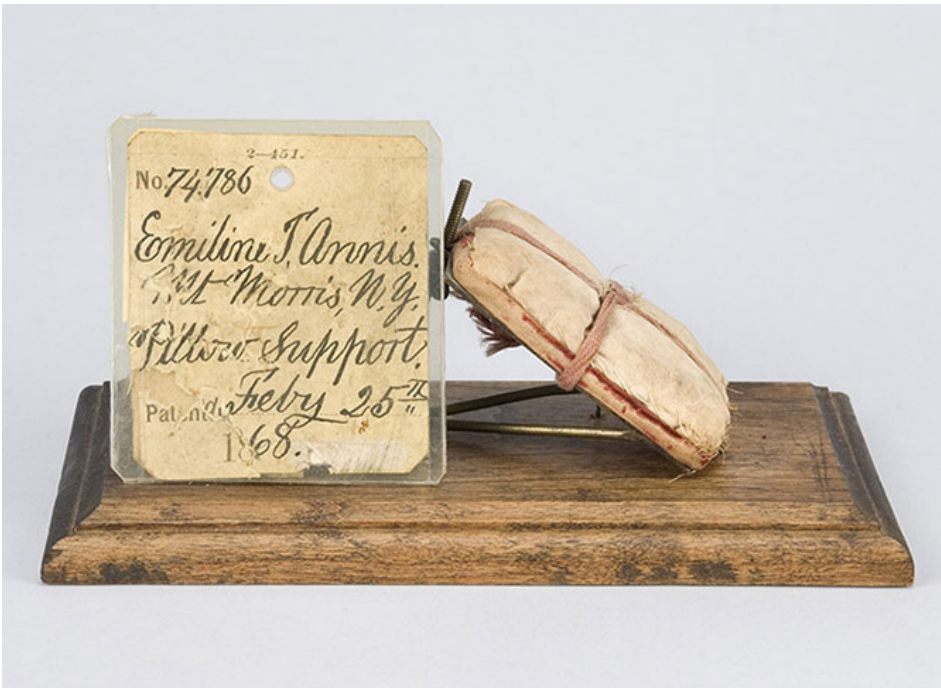 2—451.
No. 74,786
Emiline T. Annis.
Mt Morris, N.Y.
Pillow Support.
Patented Feby 25th
1868.